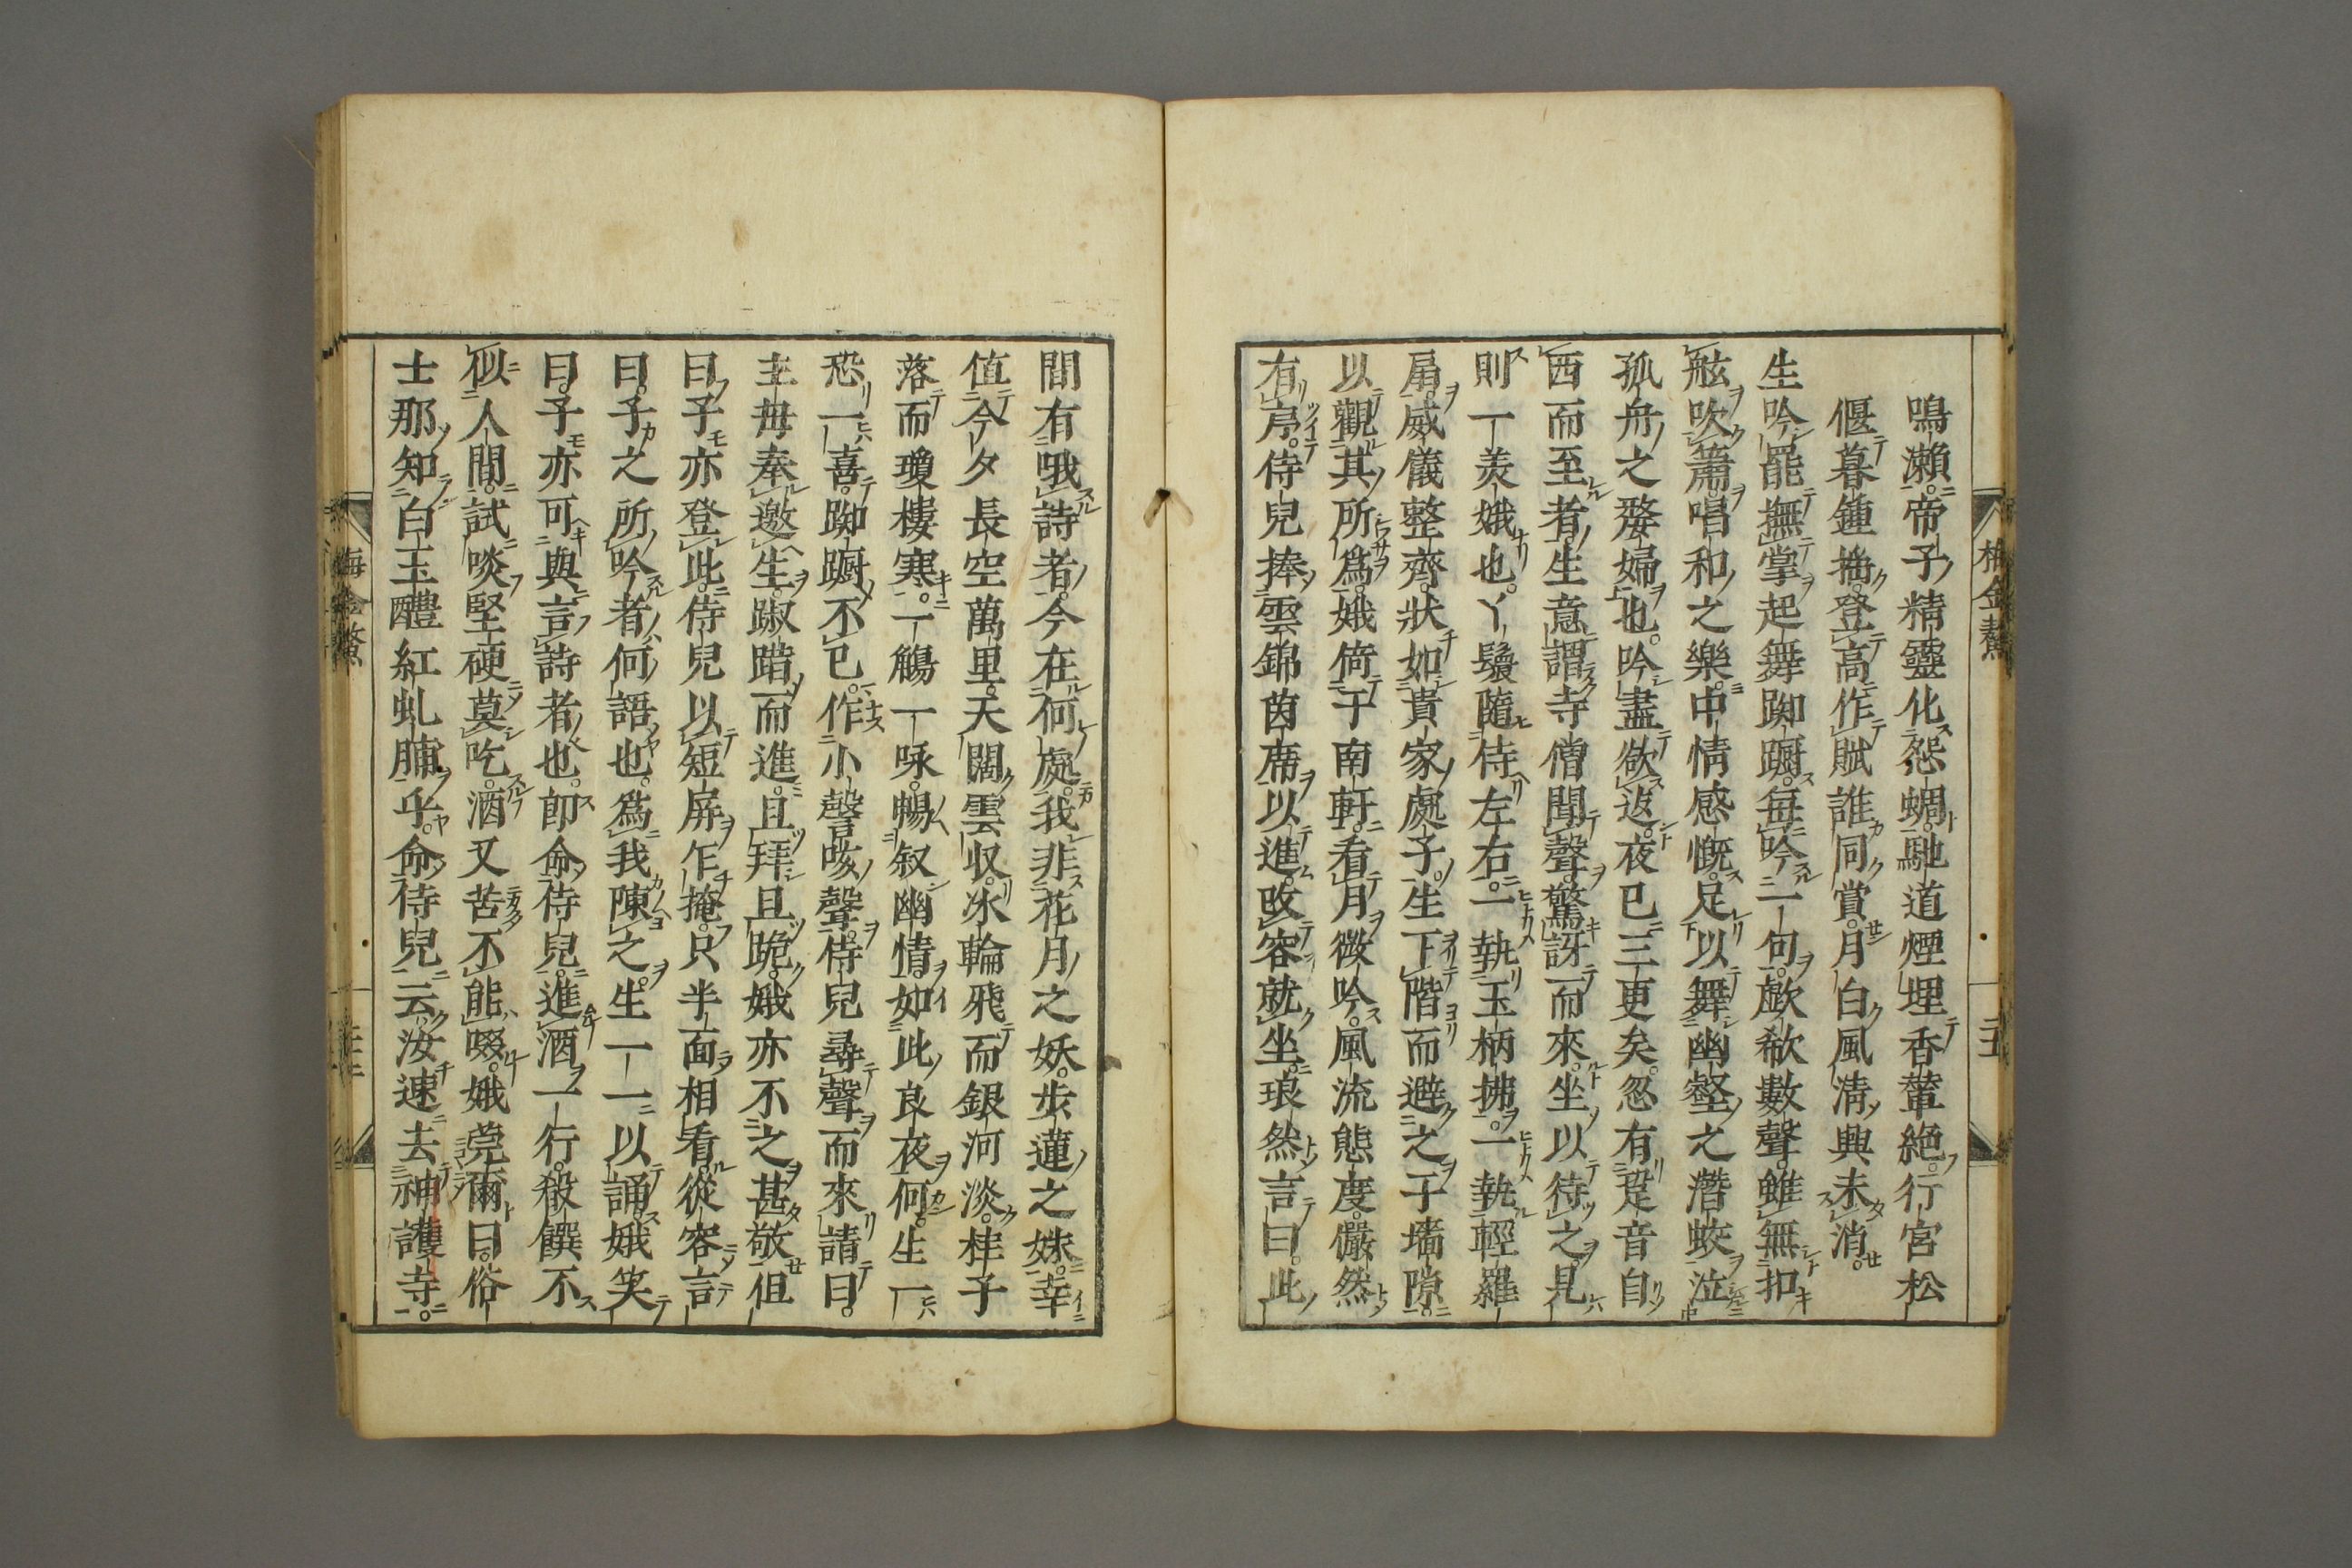 鳴瀨帝子精靈化怨蜩馳道煙埋香輦絶行宮松
偃暮鍾搖登高作賦誰同賞月白風淸興未消
生吟罷撫掌起舞踟躕每吟一句歔欷數聲雖無扣
舷吹簫唱和之樂中情感慨足以舞幽壑之潛蛟泣
孤舟之嫠婦也吟盡欲返夜已三更矣忽有跫音自
西而至者生意謂寺僧聞聲驚訝而來坐以待之見
則一美娥也丫鬟隨侍左右一執玉柄拂一執輕羅
扇威儀整齊狀如貴家處子生下階而避之于墻隙
以觀其所爲娥倚于南軒看月微吟風流態度儼然
有序侍兒捧雲錦茵席以進改容就坐琅然言曰此
間有哦詩者今在何處我非花月之妖步蓮之姝幸
値今夕長空萬里天闊雲収冰輪飛而銀河淡桂子
落而瓊樓寒一觴一咏暢叙幽情如此良夜何生一
恐一喜踟躕不已作小謦咳聲侍兒尋聲而來請曰
主母奉邀生踧踖而進且拜且跪娥亦不之甚敬但
曰子亦登此侍兒以短屛乍掩只半面相看從容言
曰子之所吟者何語也爲我陳之生一一以誦娥笑
曰子亦可與言詩者也卽命侍兒進酒一行殽饌不
似人間試啖堅硬莫吃酒又苦不能啜娥莞爾曰俗
士那知白玉醴紅虬脯乎命侍兒云汝速去神護寺
梅金鰲
二十五
梅金鰲